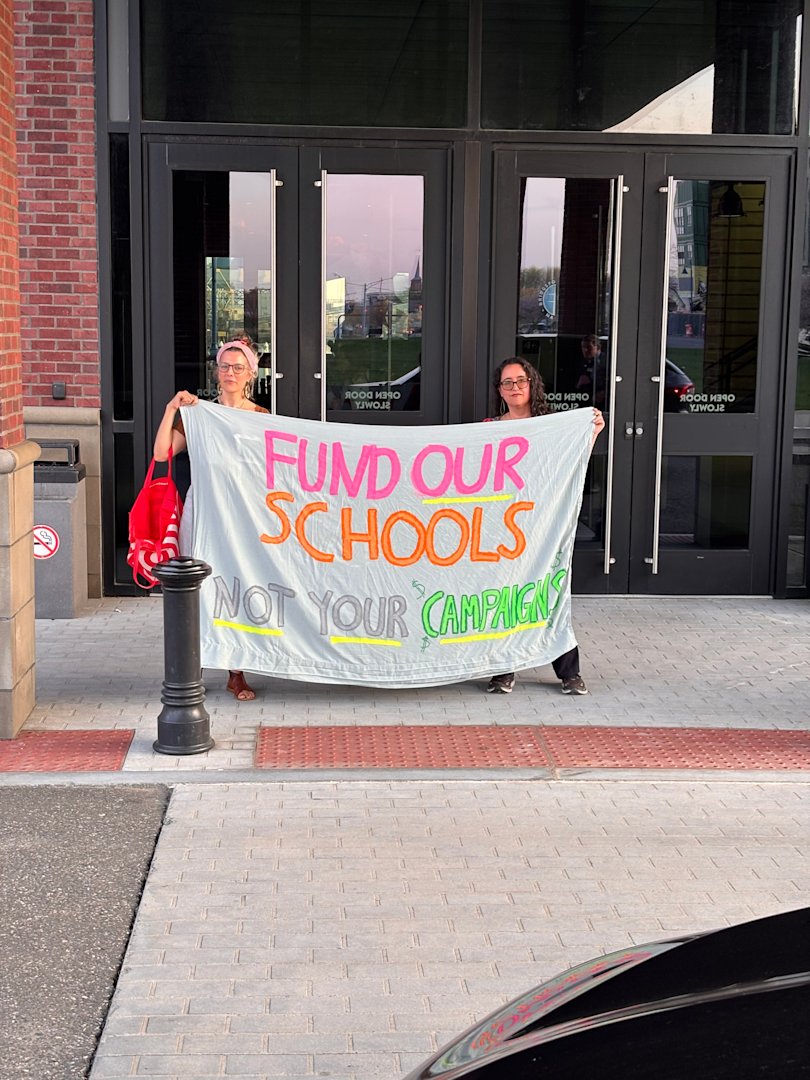 FUND OUR
SCHOOLS
NOT YOUR CAMPAIGNS
OPEN DOOR
SLOWLY
OPEN DOOR
SLOWLY